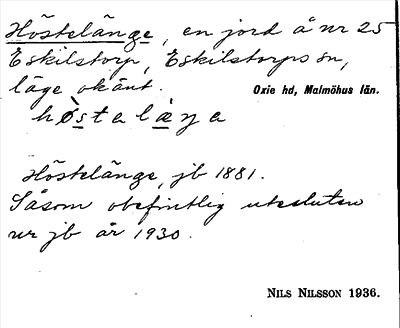 Höstelänge, en jord å nr 25
Eskilstorp, Eskilstorps sn,
läge okänt. Oxie hd, Malmöhus län.
høstalæŋa
Höstelänge, jb 1881.
Såsom obefintlig utesluten
ur jb år 1930.
NILS NILSSON 1936.